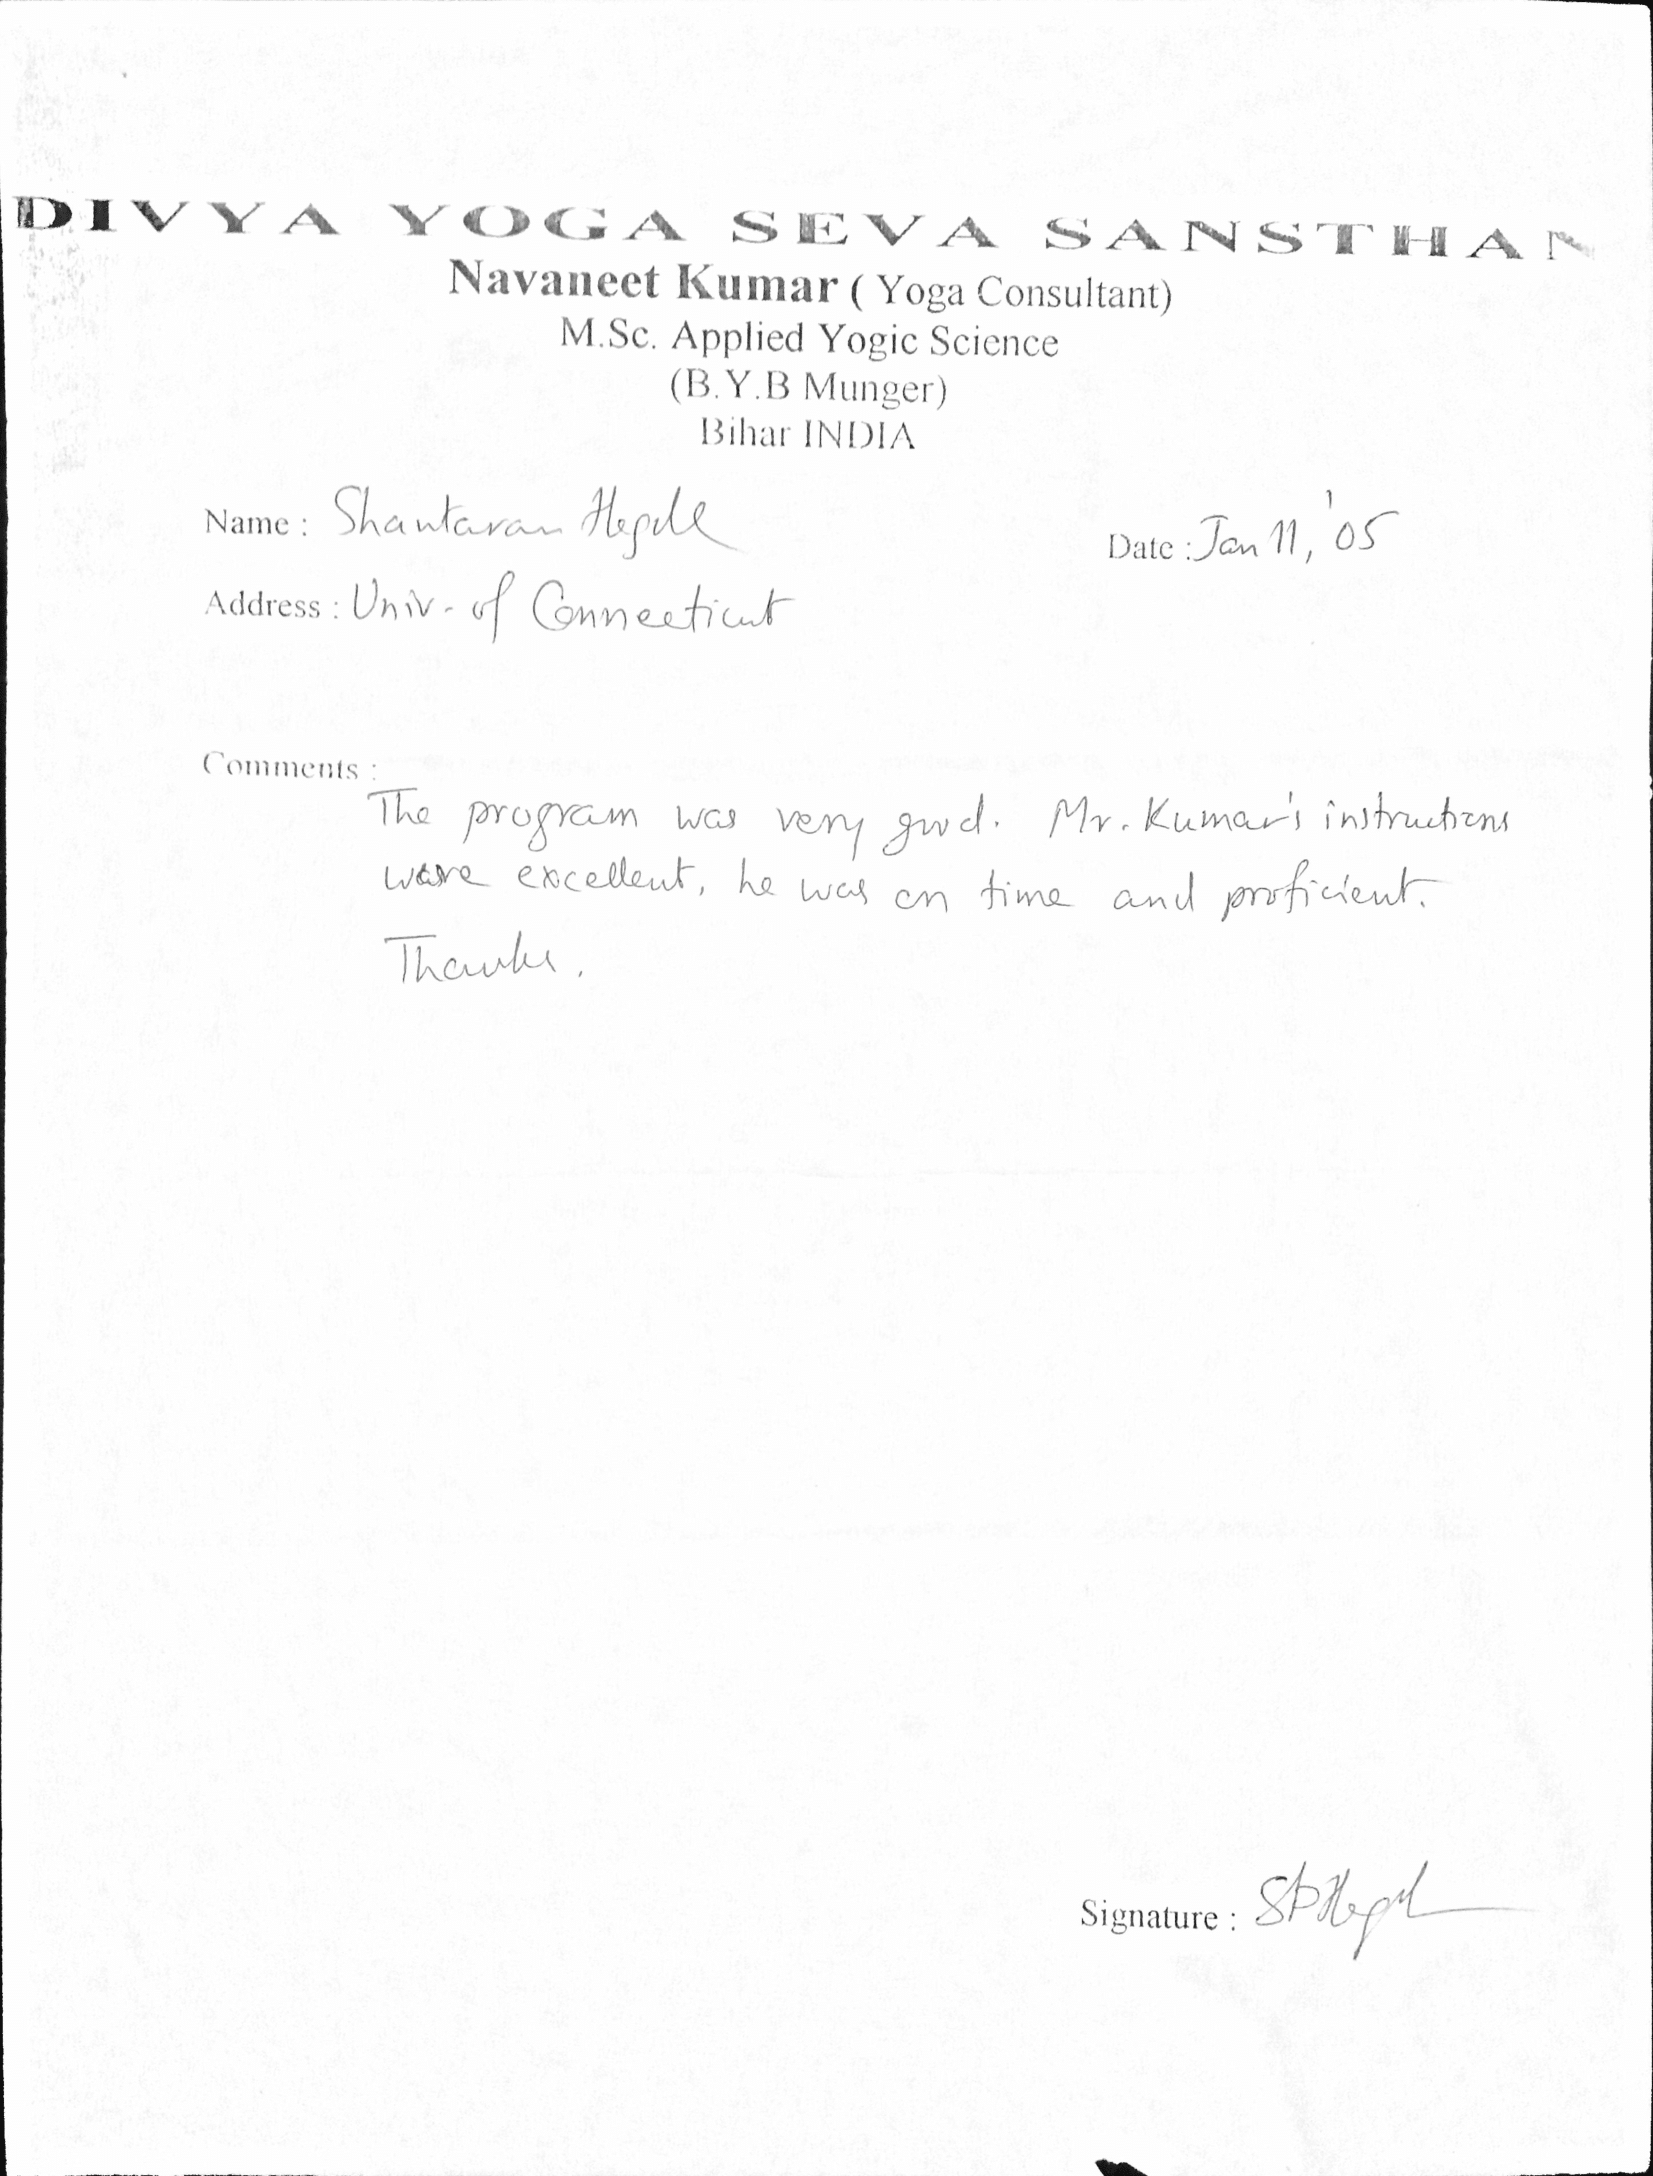 DIVYA YOGA SEVA SANSTHAN
Navaneet Kumar ( Yoga Consultant)
M.Sc. Applied Yogic Science
(B.Y.B Munger)
Bihar INDIA
Name : Shantaram Hegde
Date : Jan 11, '05
Address : Univ. of Connecticut
Comments :
The program was very good. Mr. Kumar's instructions
were excellent, he was on time and proficient.
Thanks.
Signature : SPHegde